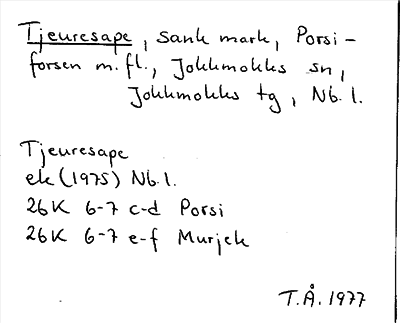 Tjeuresape, sank mark, Porsi-
forsen m.fl., Jokkmokks sn,
Jokkmokks tg, Nb.l.
Tjeuresape
ek (1975) Nb.l.
26K 6-7 c-d Porsi
26K 6-7 e-f Murjek
T.Å. 1977